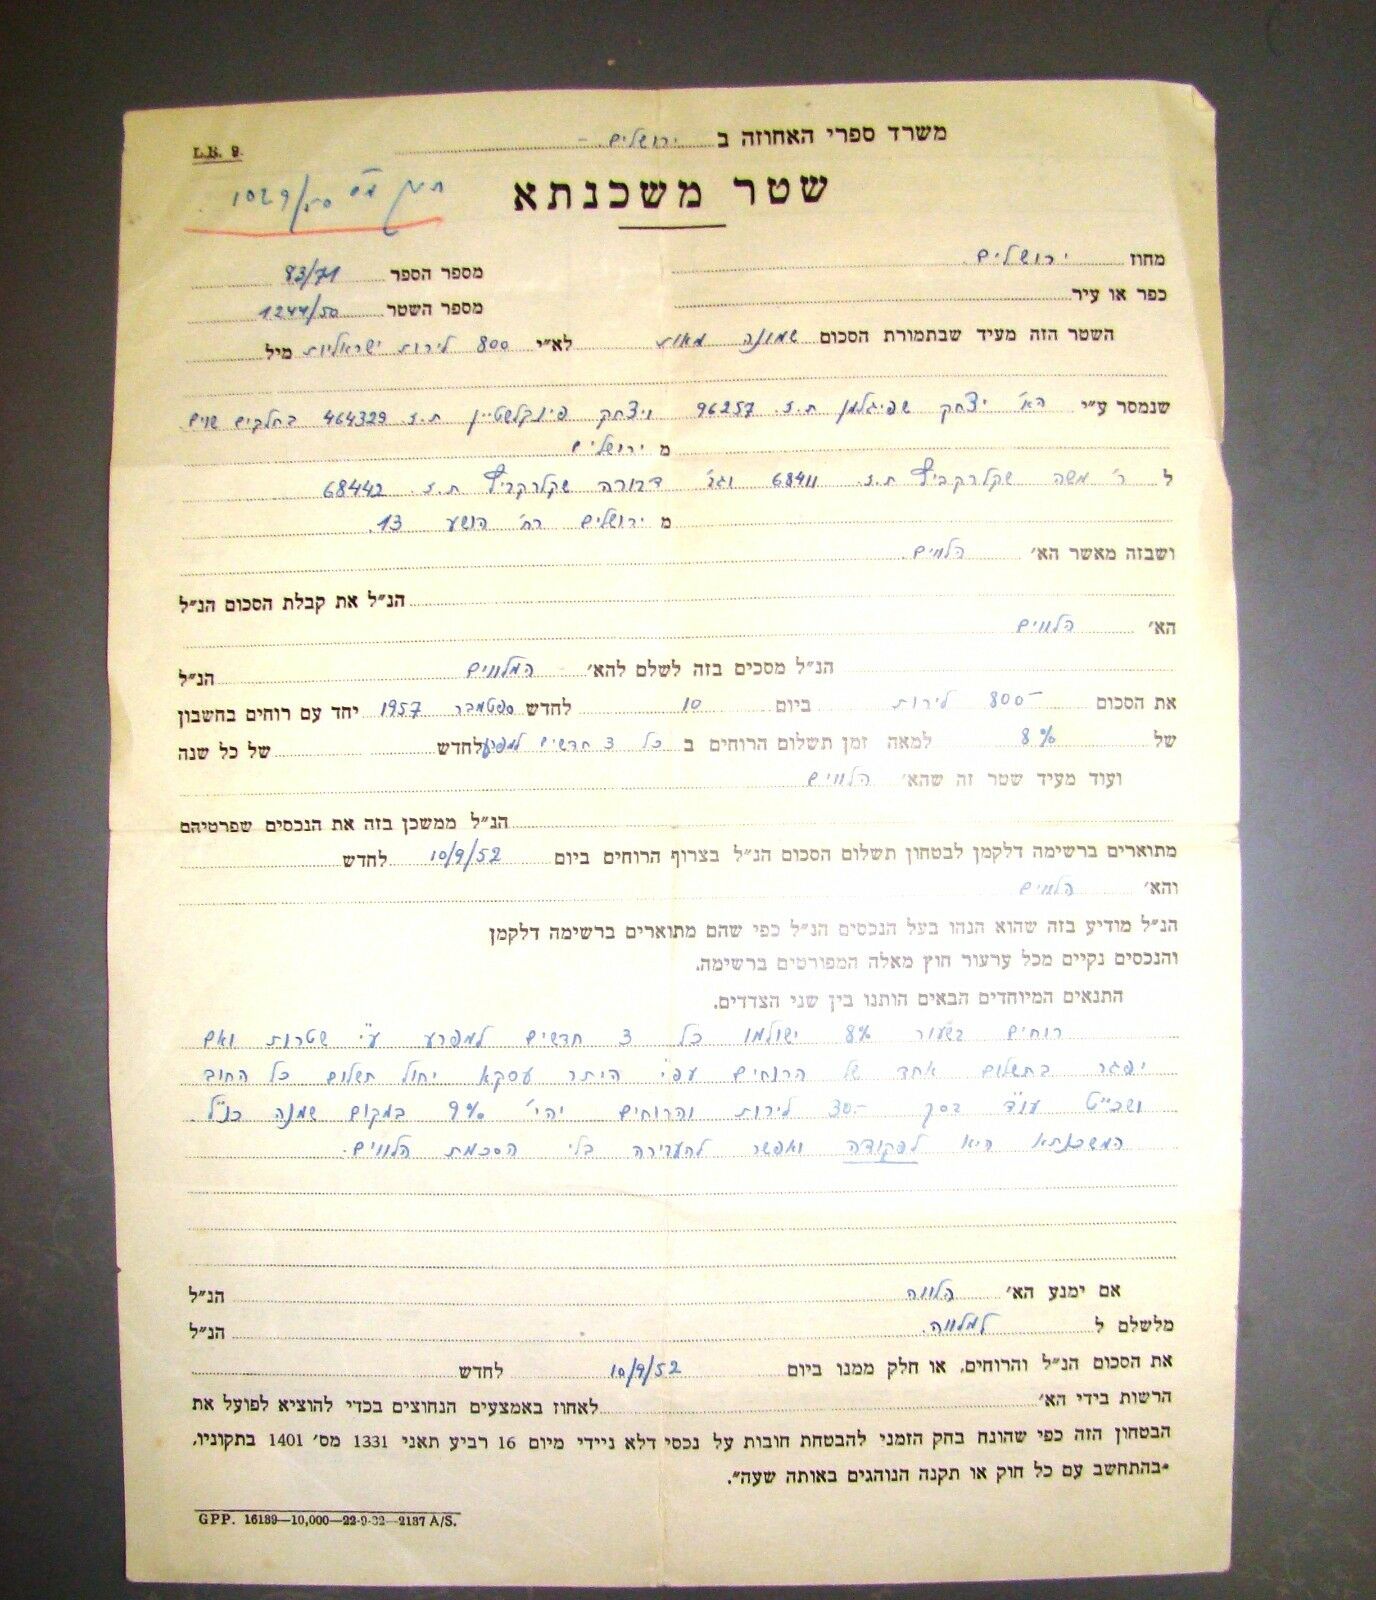 משרד ספרי האחוזה ב ירושלים –
L.R. 9.
שטר משכנתא
תיק 1029/50
מחוז ירושלים
מספר הספר 83/71
כפר או עיר
מספר השטר 1244/50
השטר הזה מעיד שבתמורת הסכום שמונה מאות לא״י 800 לירות ישראליות מיל
שנמסר ע״י הא' יצחק שפיגלמן ת.ז. 96257 ויצחק פינקלשטיין ת.ז. 464329 בחלקים שוים
מ ירושלים
ל ר' משה ת.ז. 68411 וגב' דבורה ת.ז. 68442
מ ירושלים רח' הושע 13.
ושבזה מאשר הא' הלווים
הנ״ל את קבלת הסכום הנ״ל
הא' הלווים
הנ״ל מסכים בזה לשלם להא' המלווים הנ״ל
את הסכום 800– לירות ביום 10 לחדש ספטמבר 1957 יחד עם רוחים בחשבון
של 8% למאה זמן תשלום הרוחים ב כל 3 חדשים למפרע לחדש של כל שנה
ועוד מעיד שטר זה שהא' הלווים
הנ״ל ממשכן בזה את הנכסים שפרטיהם
מתוארים ברשימה דלקמן לבטחון תשלום הסכום הנ״ל בצרוף הרוחים ביום 10/9/52 לחדש
והא' הלווים
הנ״ל מודיע בזה שהוא הנהו בעל הנכסים הנ״ל כפי שהם מתוארים ברשימה דלקמן
והנכסים נקיים מכל ערעור חוץ מאלה המפורטים ברשימה.
התנאים המיוחדים הבאים הותנו בין שני הצדדים.
רוחים בשעור 8% ישולמו כל 3 חדשים למפרע ע״י שטרות ואם
יפגר בתשלום אחד של הרוחים עפ״י היתר עסקא יחול תשלום כל החוב
ושכ״ט עו״ד בסך 30.– לירות והרוחים יהי' 9% במקום שמנה כנ״ל.
המשכנתא היא לפקודה ואפשר להעבירה בלי הסכמת הלווים.
אם ימנע הא' הלווה הנ״ל
מלשלם ל למלווה. הנ״ל
את הסכום הנ״ל והרוחים, או חלק ממנו ביום 10/9/52 לחדש
הרשות בידי הא' לאחוז באמצעים הנחוצים בכדי להוציא לפועל את
הבטחון הזה כפי שהונח בחק הזמני להבטחת חובות על נכסי דלא ניידי מיום 16 רביע תאני 1331 מס׳ 1401 בתקוניו,
״בהתחשב עם כל חוק או תקנה הנוהגים באותה שעה״.
GPP. 16189—10,000—22-9-32—2137 A/S.